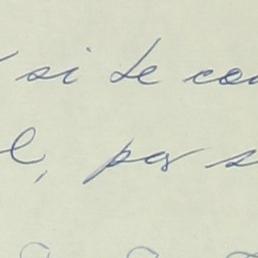 si te co
l, por s